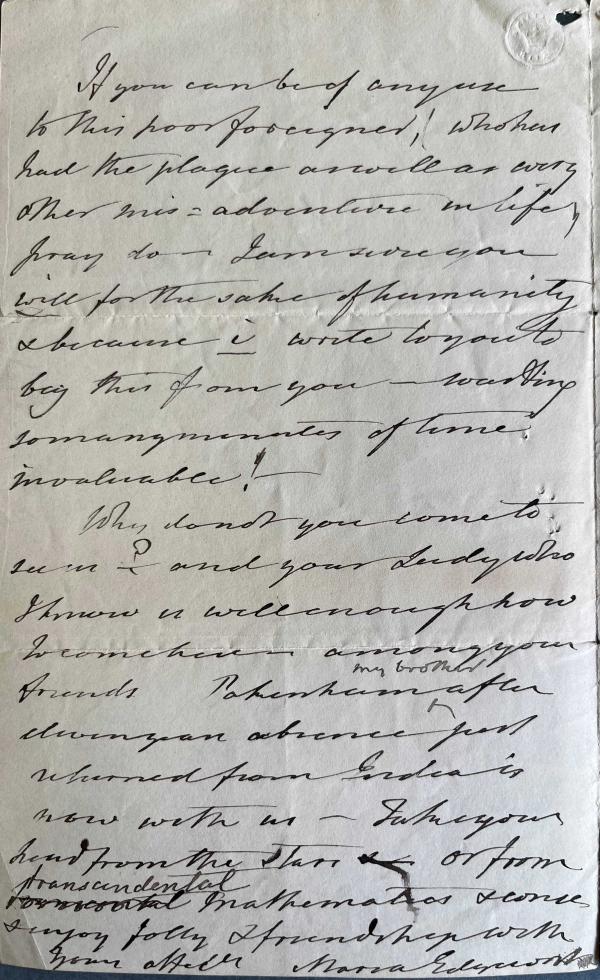 If you can be of any use
to this poor foreigner, who has
had the plague as well as every
other mis=adventure in life,
pray do — I am sure you
will for the sake of humanity
& because i write to you to
beg this from you — wasting
so many minutes of time
invaluable! —
Why do not you come to
see us ? — and your Lady who
I know is well enough how
to come here — among your
my brother
friends Pakenham after
eleven year absence just
returned from India is
now with us — Take your
head from the stars or from
transcendental
Mathematics & come
& enjoy folly & friendship with
Your aff
Maria Edgeworth